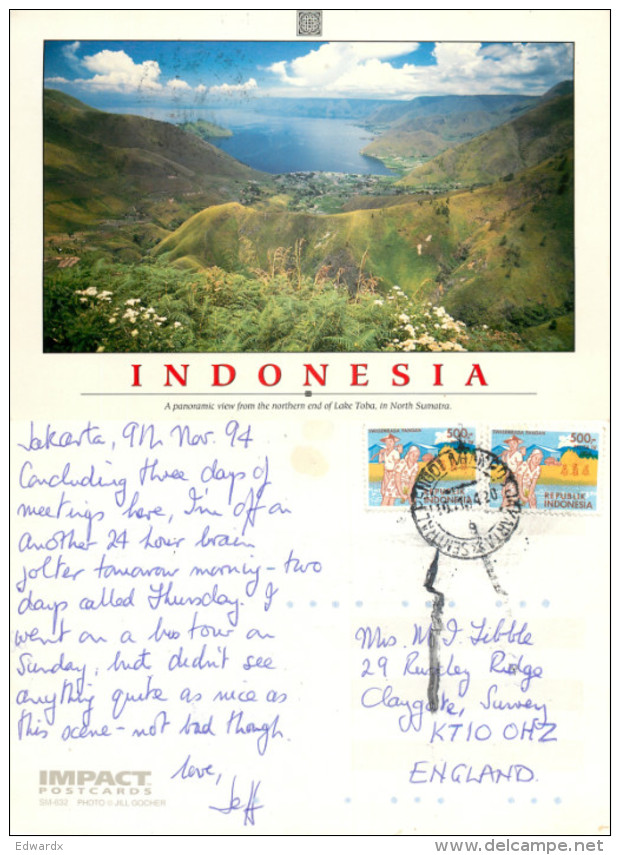 INDONESIA
A panoramic view from the northern end of Lake Toba, in North Sumatra.
Jakarta, 9th Nov. 94
Concluding three days of
meetings here, I'm off on
another 24 hour brain
jolter tomorrow morning - two
days called Thursday. I
went on a bus tour on
Sunday, but didn't see
anything quite as nice as
this scene - not bad though.
love,
Jeff
SWASEMBADA PANGAN
500,-
REPUBLIK
INDONESIA
SWASEMBADA PANGAN
500,-
REPUBLIK
INDONESIA
Mrs. M. J. Tibble
29 Ridge
Claygate, Surrey
KT10 0HZ
ENGLAND.
IMPACT
POSTCARDS
SM-632 PHOTO © JILL GOCHER
Edwardx
www.delcampe.net